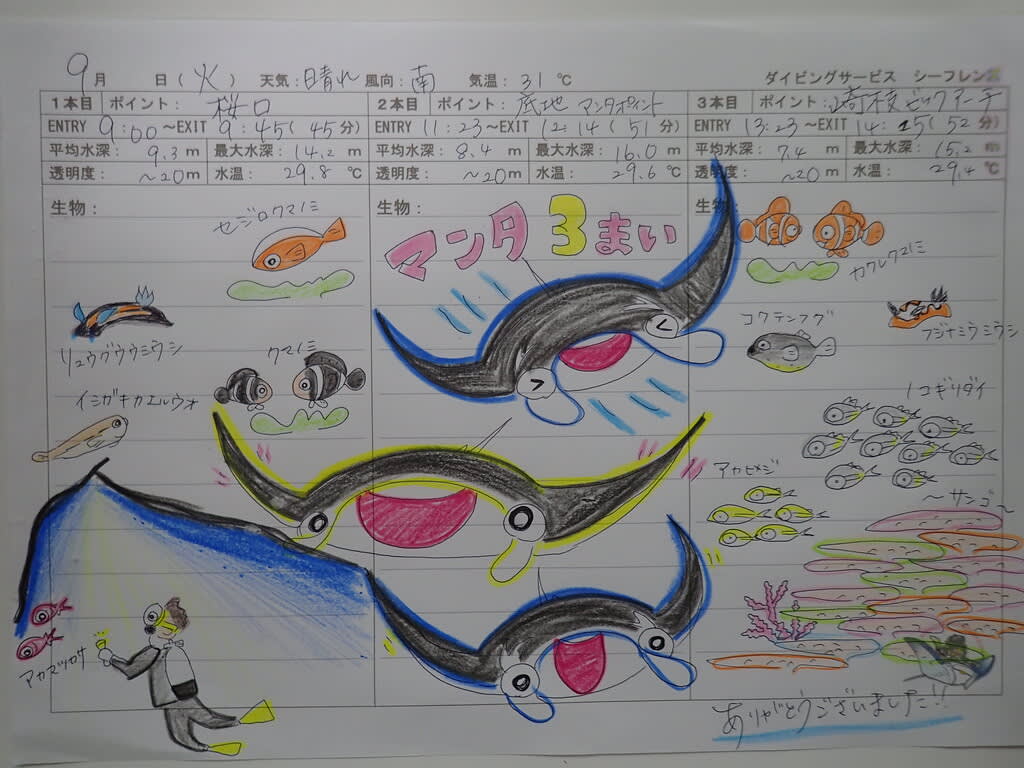 9月 日(火) 天気:晴れ 風向:南 気温:31℃ ダイビングサービス シーフレンズ
1本目 ポイント: 桜口
ENTRY 9:00~EXIT 9:45(45分)
平均水深: 9.3m 最大水深: 14.2m
透明度: ~20m 水温: 29.8℃
2本目 ポイント: 底地 マンタポイント
ENTRY 11:23~EXIT 12:14(51分)
平均水深: 8.4m 最大水深: 16.0m
透明度: ~20m 水温: 29.6℃
3本目 ポイント: 崎枝ビッグアーチ
ENTRY 13:23~EXIT 14:15(52分)
平均水深: 7.4m 最大水深: 15.2m
透明度: ~20m 水温: 29.4℃
生物:
セジロクマノミ
リュウグウウミウシ
クマノミ
イシガキカエルウオ
アカマツカサ
生物:
マンタ3まい
生物
カクレクマノミ
コクテンフグ
フジナミウミウシ
ノコギリダイ
アカヒメジ
~サンゴ~
ありがとうございました!!